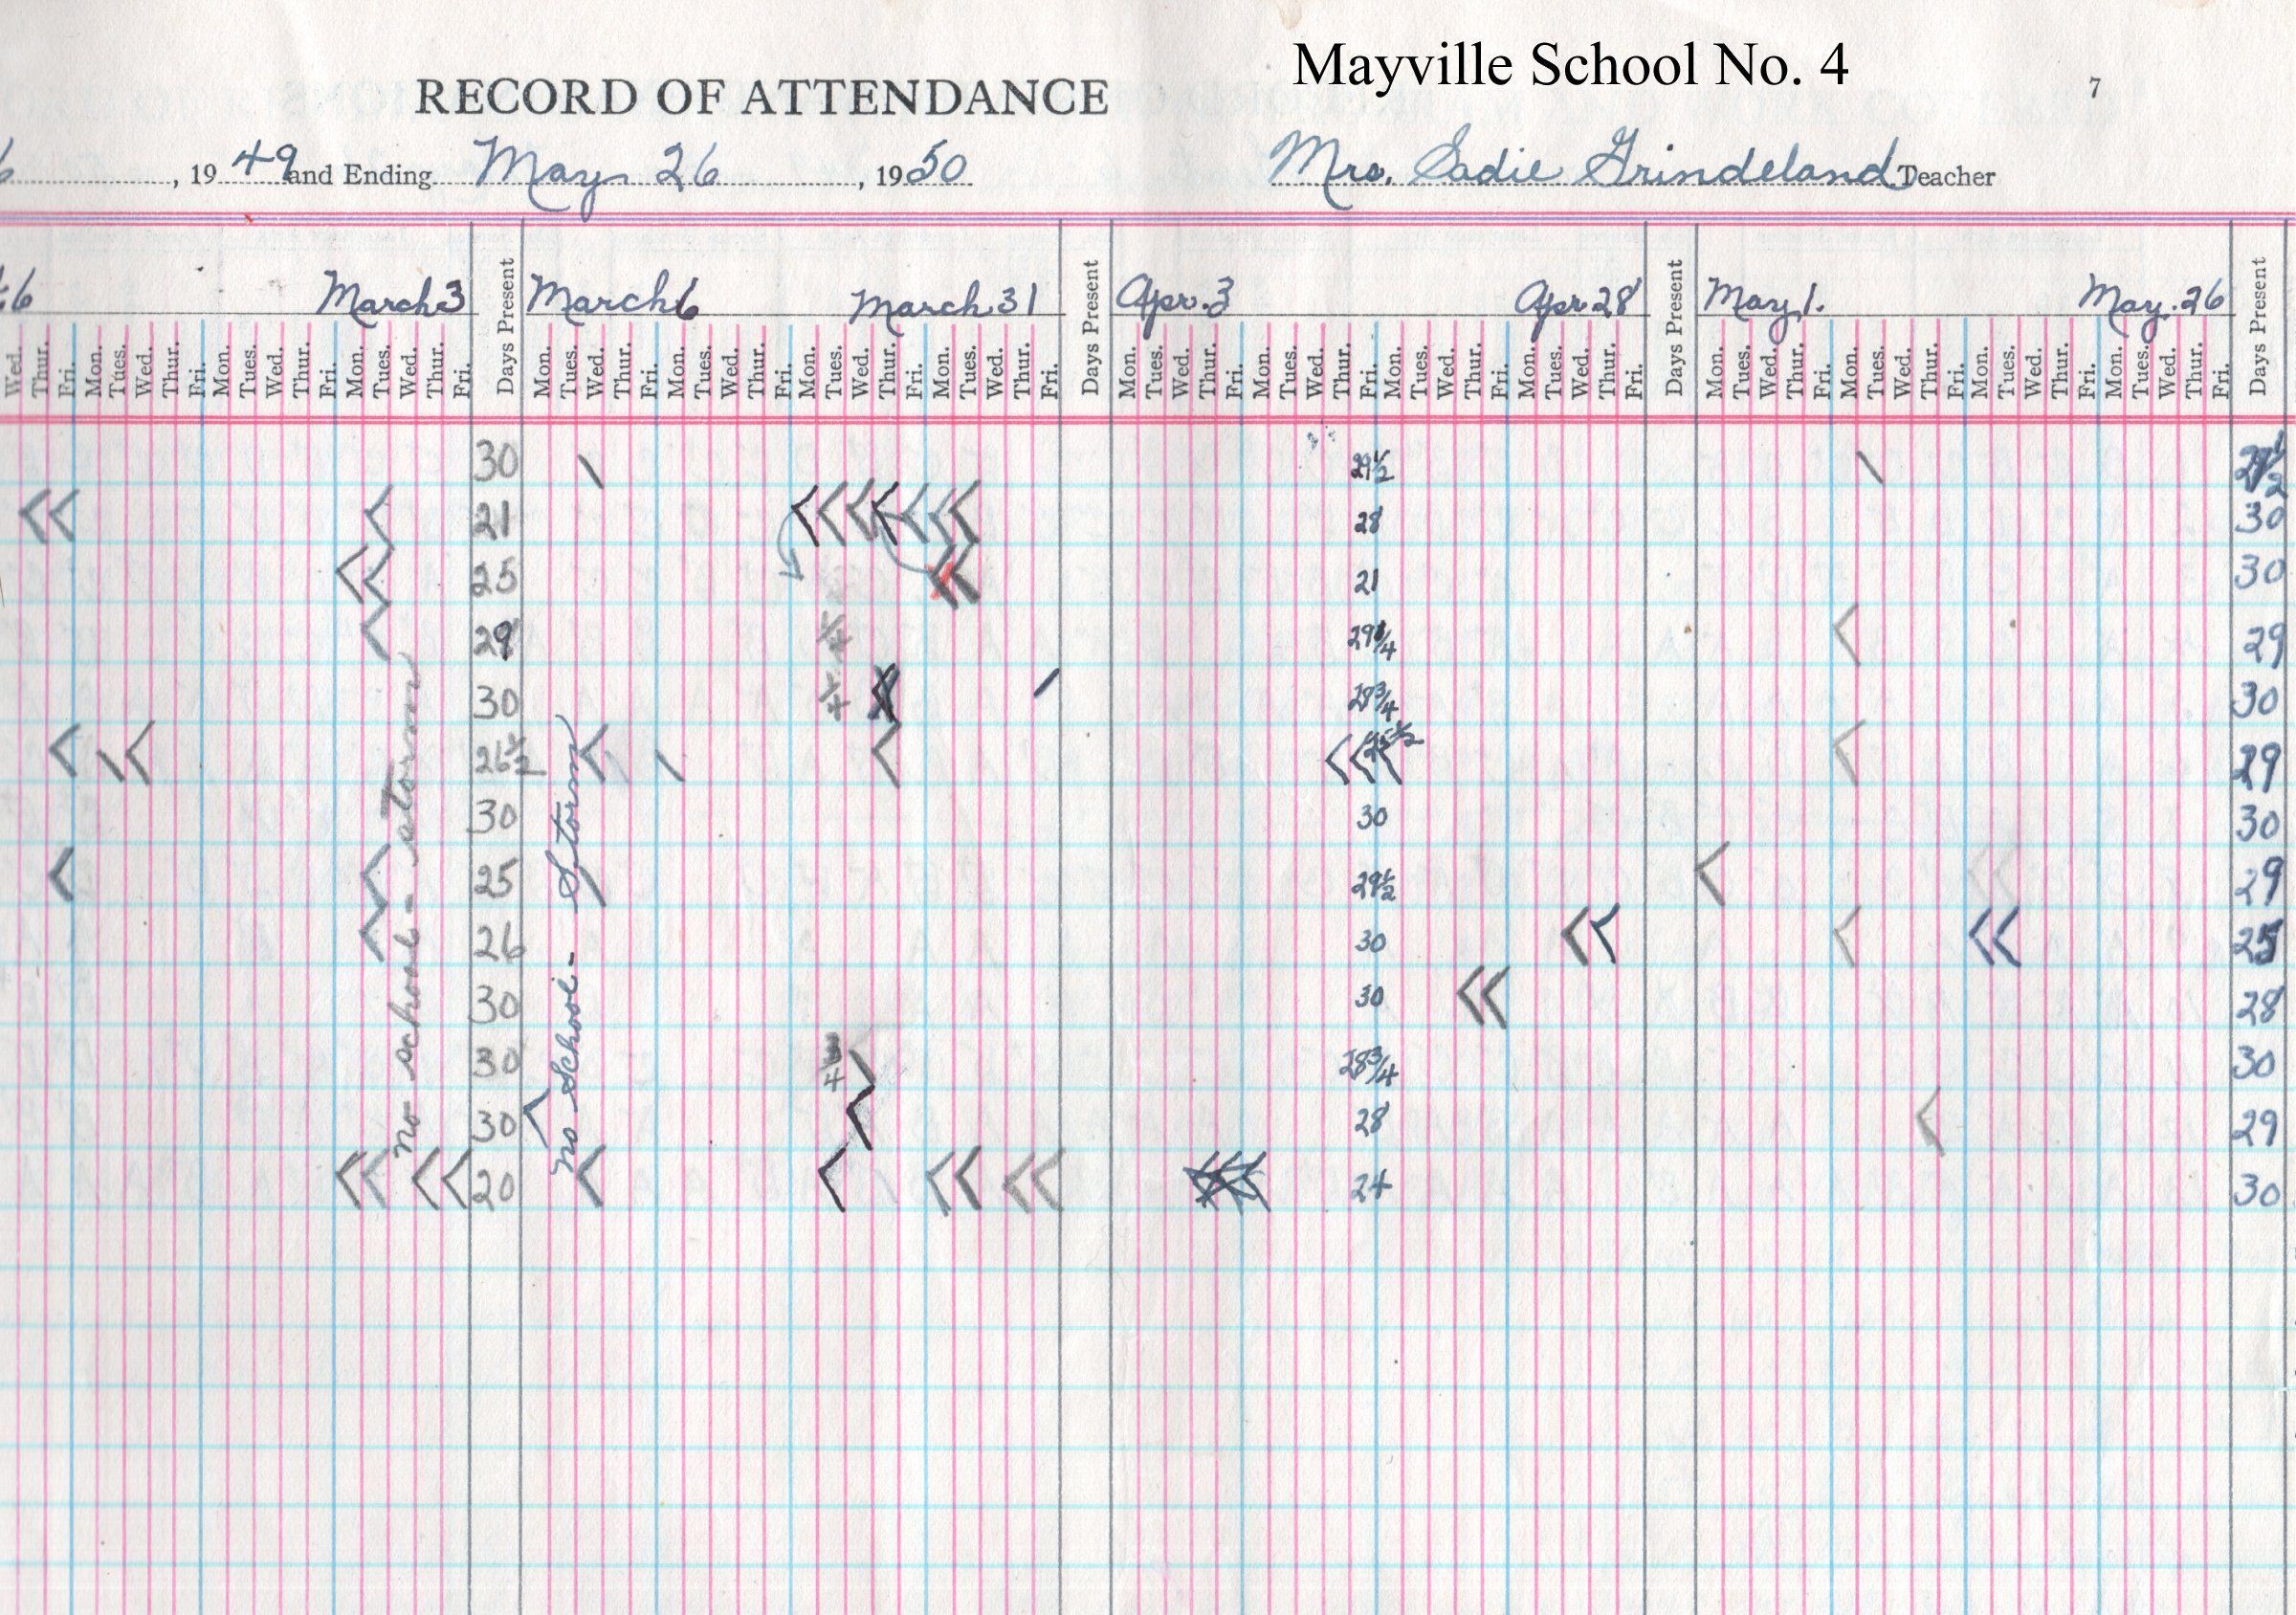 Mayville School No. 4
RECORD OF ATTENDANCE
7
6, 1949 and Ending May 26, 1950 Mrs. Sadie Grindeland Teacher
March 3 Days Present March 6 March 31 Days Present Apr. 3 Apr 28 Days Present May 1. May. 26 Days Present
Wed. Thur. Fri. Mon. Tues. Wed. Thur. Fri. Mon. Tues. Wed. Thur. Fri. Mon. Tues. Wed. Thur. Fri. Mon. Tues. Wed. Thur. Fri. Mon. Tues. Wed. Thur. Fri. Mon. Tues. Wed. Thur. Fri. Mon. Tues. Wed. Thur. Fri. Mon. Tues. Wed. Thur. Fri. Mon. Tues. Wed. Thur. Fri. Mon. Tues. Wed. Thur. Fri. Mon. Tues. Wed. Thur. Fri. Mon. Tues. Wed. Thur. Fri. Mon. Tues. Wed. Thur. Fri. Mon. Tues. Wed. Thur. Fri. Mon. Tues. Wed. Thur. Fri.
30 29½ 29½
21 28 30
25 21 30
29 ¼ 29¼ 29
30 ¼ 28¾ 30
26½ 29
30 30 30
25 29½ 29
26 30 25
30 30 28
30 ¾ 28¾ 30
30 28 29
20 24 30
no school - storm
no School - Storm